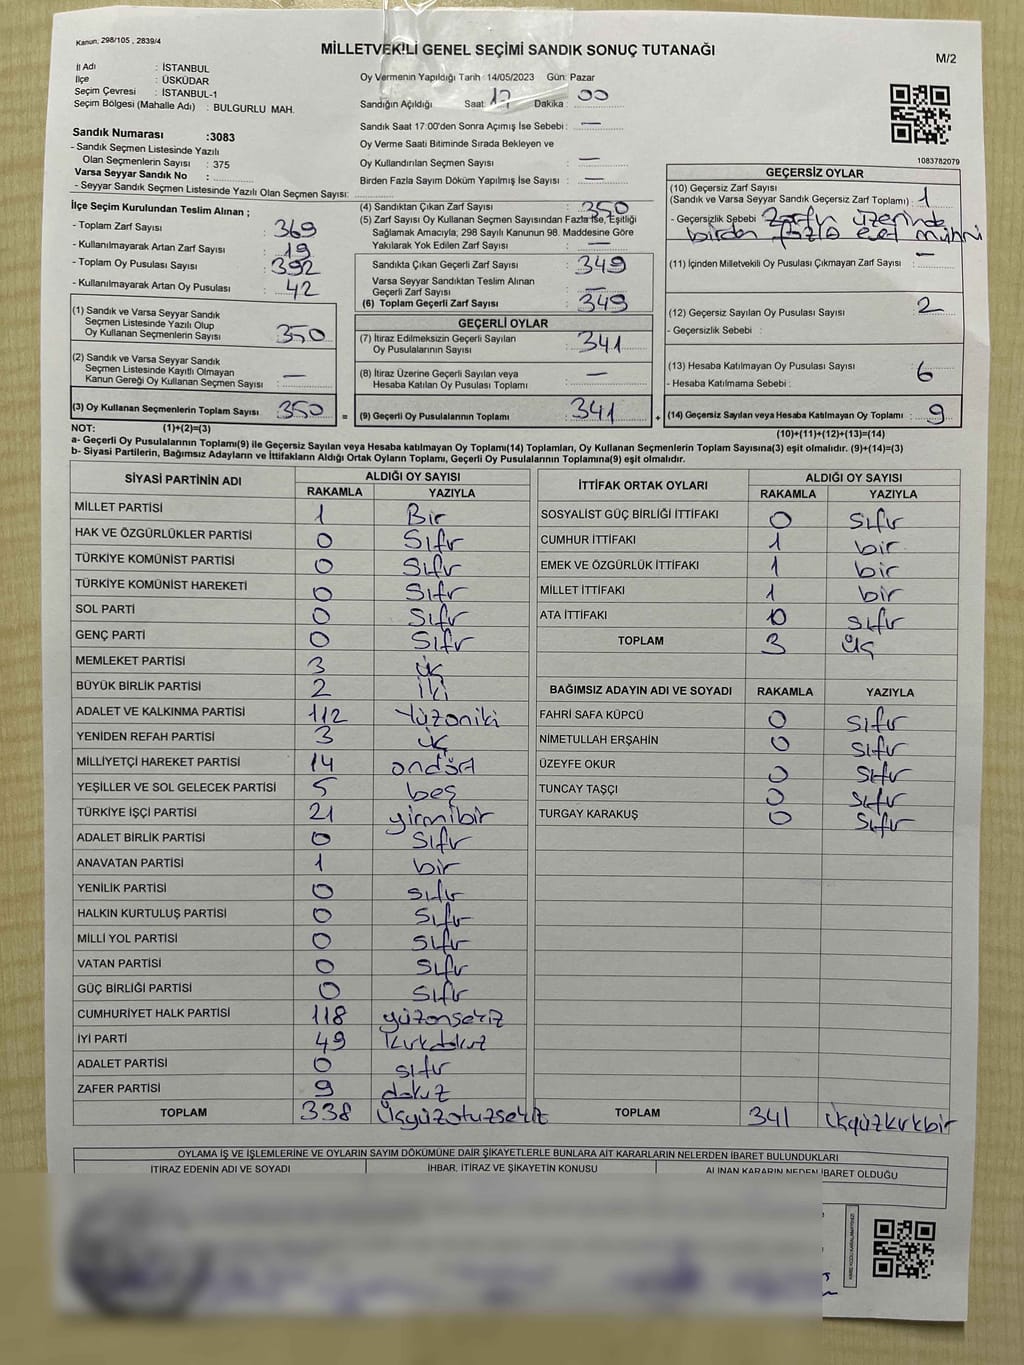 Kanun, 298/105 , 2839/4
MİLLETVEKİLİ GENEL SEÇİMİ SANDIK SONUÇ TUTANAĞI
M/2
İl Adı : İSTANBUL
İlçe : ÜSKÜDAR
Seçim Çevresi : İSTANBUL-1
Seçim Bölgesi (Mahalle Adı) : BULGURLU MAH.
Sandık Numarası :3083
- Sandık Seçmen Listesinde Yazılı
Olan Seçmenlerin Sayısı : 375
Varsa Seyyar Sandık No :
- Seyyar Sandık Seçmen Listesinde Yazılı Olan Seçmen Sayısı:
Oy Vermenin Yapıldığı Tarih : 14/05/2023 Gün: Pazar
Sandığın Açıldığı Saat: 17 Dakika : 00
Sandık Saat 17:00'den Sonra Açımış İse Sebebi : —
Oy Verme Saati Bitiminde Sırada Bekleyen ve
Oy Kullandırılan Seçmen Sayısı : —
Birden Fazla Sayım Döküm Yapılmış İse Sayısı : —
1083782079
İlçe Seçim Kurulundan Teslim Alınan ;
- Toplam Zarf Sayısı : 369
- Kullanılmayarak Artan Zarf Sayısı : 19
- Toplam Oy Pusulası Sayısı : 392
- Kullanılmayarak Artan Oy Pusulası : 42
(1) Sandık ve Varsa Seyyar Sandık
Seçmen Listesinde Yazılı Olup
Oy Kullanan Seçmenlerin Sayısı : 350
(2) Sandık ve Varsa Seyyar Sandık
Seçmen Listesinde Kayıtlı Olmayan
Kanun Gereği Oy Kullanan Seçmen Sayısı : —
(3) Oy Kullanan Seçmenlerin Toplam Sayısı : 350
(4) Sandıktan Çıkan Zarf Sayısı : 350
(5) Zarf Sayısı Oy Kullanan Seçmen Sayısından Fazla ise, Eşitliği
Sağlamak Amacıyla; 298 Sayılı Kanunun 98. Maddesine Göre
Yakılarak Yok Edilen Zarf Sayısı : —
Sandıkta Çıkan Geçerli Zarf Sayısı : 349
Varsa Seyyar Sandıktan Teslim Alınan
Geçerli Zarf Sayısı : —
(6) Toplam Geçerli Zarf Sayısı : 349
GEÇERLİ OYLAR
(7) İtiraz Edilmeksizin Geçerli Sayılan
Oy Pusulalarının Sayısı : 341
(8) İtiraz Üzerine Geçerli Sayılan veya
Hesaba Katılan Oy Pusulası Toplamı : —
= (9) Geçerli Oy Pusulalarının Toplamı : 341
GEÇERSİZ OYLAR
(10) Geçersiz Zarf Sayısı
(Sandık ve Varsa Seyyar Sandık Zarf Toplamı) : 1
- Geçersizlik Sebebi : Zarfın üzerinde
birden fazla evet mührü
(11) İçinden Milletvekili Oy Pusulası Çıkmayan Zarf Sayısı : —
(12) Geçersiz Sayılan Oy Pusulası Sayısı : 2
- Geçersizlik Sebebi :
(13) Hesaba Katılmayan Oy Pusulası Sayısı : 6
- Hesaba Katılmama Sebebi :
+ (14) Geçersiz Sayılan veya Hesaba Katılmayan Oy Toplamı : 9
NOT: (1)+(2)=(3)
(10)+(11)+(12)+(13)=(14)
a- Geçerli Oy Pusulalarının Toplamı(9) ile Geçersiz Sayılan veya Hesaba katılmayan Oy Toplamı(14) Toplamları, Oy Kullanan Seçmenlerin Toplam Sayısına(3) eşit olmalıdır. (9)+(14)=(3)
b- Siyasi Partilerin, Bağımsız Adayların ve İttifakların Aldığı Ortak Oyların Toplamı, Geçerli Oy Pusulalarının Toplamına(9) eşit olmalıdır.
SİYASİ PARTİNİN ADI ALDIĞI OY SAYISI
RAKAMLA YAZIYLA
MİLLET PARTİSİ 1 Bir
HAK VE ÖZGÜRLÜKLER PARTİSİ 0 Sıfır
TÜRKİYE KOMÜNİST PARTİSİ 0 Sıfır
TÜRKİYE KOMÜNİST HAREKETİ 0 Sıfır
SOL PARTİ 0 Sıfır
GENÇ PARTİ 0 Sıfır
MEMLEKET PARTİSİ 3 üç
BÜYÜK BİRLİK PARTİSİ 2 İki
ADALET VE KALKINMA PARTİSİ 112 Yüzoniki
YENİDEN REFAH PARTİSİ 3 üç
MİLLİYETÇİ HAREKET PARTİSİ 14 ondört
YEŞİLLER VE SOL GELECEK PARTİSİ 5 beş
TÜRKİYE İŞÇİ PARTİSİ 21 yirmibir
ADALET BİRLİK PARTİSİ 0 Sıfır
ANAVATAN PARTİSİ 1 bir
YENİLİK PARTİSİ 0 sıfır
HALKIN KURTULUŞ PARTİSİ 0 Sıfır
MİLLİ YOL PARTİSİ 0 sıfır
VATAN PARTİSİ 0 Sıfır
GÜÇ BİRLİĞİ PARTİSİ 0 Sıfır
CUMHURİYET HALK PARTİSİ 118 yüzonsekiz
İYİ PARTİ 49 kırkdokuz
ADALET PARTİSİ 0 sıfır
ZAFER PARTİSİ 9 dokuz
TOPLAM 338 Üçyüzotuzsekiz
İTTİFAK ORTAK OYLARI ALDIĞI OY SAYISI
RAKAMLA YAZIYLA
SOSYALİST GÜÇ BİRLİĞİ İTTİFAKI 0 Sıfır
CUMHUR İTTİFAKI 1 bir
EMEK VE ÖZGÜRLÜK İTTİFAKI 1 bir
MİLLET İTTİFAKI 1 bir
ATA İTTİFAKI 0 sıfır
TOPLAM 3 üç
BAĞIMSIZ ADAYIN ADI VE SOYADI RAKAMLA YAZIYLA
FAHRİ SAFA KÜPCÜ 0 sıfır
NİMETULLAH ERŞAHİN 0 sıfır
ÜZEYFE OKUR 0 Sıfır
TUNCAY TAŞÇI 0 sıfır
TURGAY KARAKUŞ 0 Sıfır
TOPLAM 341 üçyüzkırkbir
OYLAMA İŞ VE İŞLEMLERİNE VE OYLARIN SAYIM DÖKÜMÜNE DAİR ŞİKAYETLERLE BUNLARA AİT KARARLARIN NELERDEN İBARET BULUNDUKLARI
İTİRAZ EDENİN ADI VE SOYADI İHBAR, İTİRAZ VE ŞİKAYETİN KONUSU ALINAN KARARIN NEDEN İBARET OLDUĞU